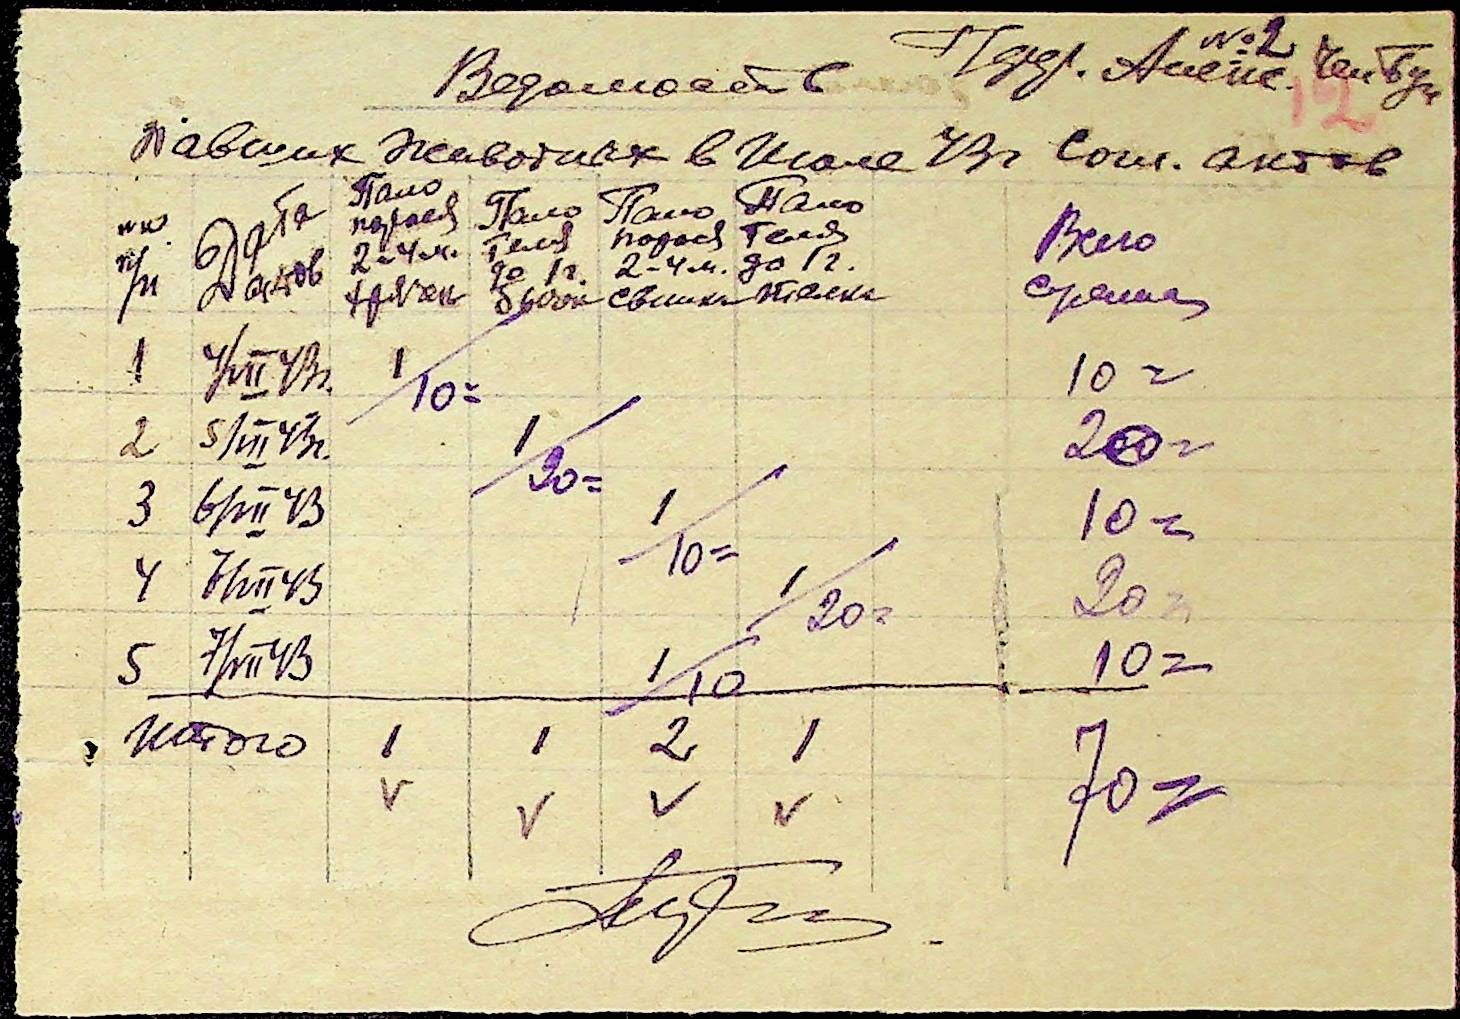 №2
Ведомость
12
Павших животных в Июле 43г Согл. актов
№№ п/п | Дата актов | Пало порося 2-4 м. хрячки | Пало теля до 1г. бычки | Пало порося 2-4 м. свинки | Пало теля до 1г. телки | Всего сумма
1 | 4/VII 43г. | 1/10= | 10=
2 | 5/VII 43г. | 1/20= | 20=
3 | 6/VII 43 | 1/10= | 10=
4 | 7/VII 43 | 1/20= | 20=
5 | 7/VII 43 | 1/10 | 10=
Итого | 1 | 1 | 2 | 1 | 70=